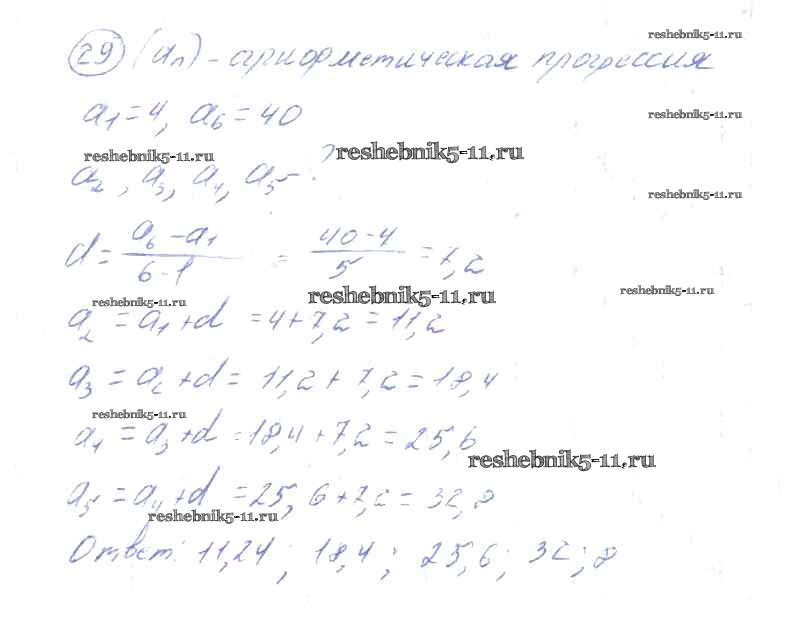 reshebnik5-11.ru
29 (an) - арифметическая прогрессия
a1=4, a6=40
reshebnik5-11.ru
reshebnik5-11.ru
reshebnik5-11.ru
a2, a3, a4, a5 - ?
reshebnik5-11.ru
d = (a6 - a1)/(6-1) = (40-4)/5 = 7,2
reshebnik5-11.ru
reshebnik5-11.ru
reshebnik5-11.ru
a2 = a1 + d = 4+7,2 = 11,2
a3 = a2 + d = 11,2 + 7,2 = 18,4
reshebnik5-11.ru
a4 = a3 + d = 18,4 + 7,2 = 25,6
reshebnik5-11.ru
a5 = a4 + d = 25,6 + 7,2 = 32,8
reshebnik5-11.ru
Ответ: 11,24; 18,4; 25,6; 32;8